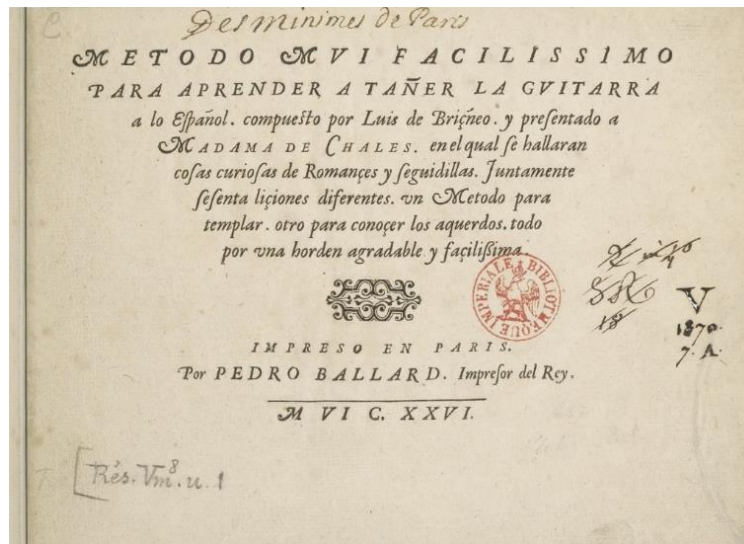 Des minimes de Paris
METODO MVI FACILISSIMO
PARA APRENDER A TAÑER LA GVITARRA
a lo Eſpañol. compueſto por Luis de Briçñeo. y preſentado a
MADAMA DE CHALES. en el qual ſe hallaran
coſas curioſas de Romançes y ſeguidillas. Juntamente
ſeſenta liçiones diferentes. vn Metodo para
templar. otro para conoçer los aquerdos. todo
por vna horden agradable y façiliſſima.
BIBLIOTHEQUE IMPERIALE
V
1870.
7. A.
IMPRESO EN PARIS.
Por PEDRO BALLARD. Impreſor del Rey.
M VI C. XXVI.
Rés. Vm⁸. u. 1